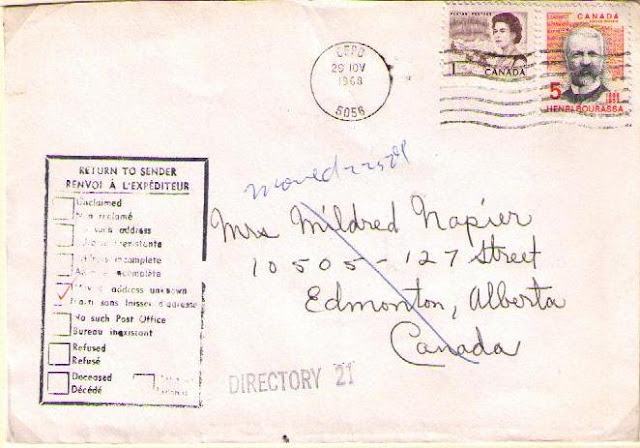 POSTES POSTAGE
1
CANADA
CANADA
5
HENRI BOURASSA
CFPO
29 IOV
1968
5056
moved
RETURN TO SENDER
RENVOI À L'EXPÉDITEUR
Unclaimed
Non réclamé
such address
incomplete
address unknown
Parti sans laisser d'adresse
No such Post Office
Bureau inexistant
Refused
Refusé
Deceased
Décédé
Mrs Mildred Napier
10505-127 Street
Edmonton, Alberta
Canada
DIRECTORY 21